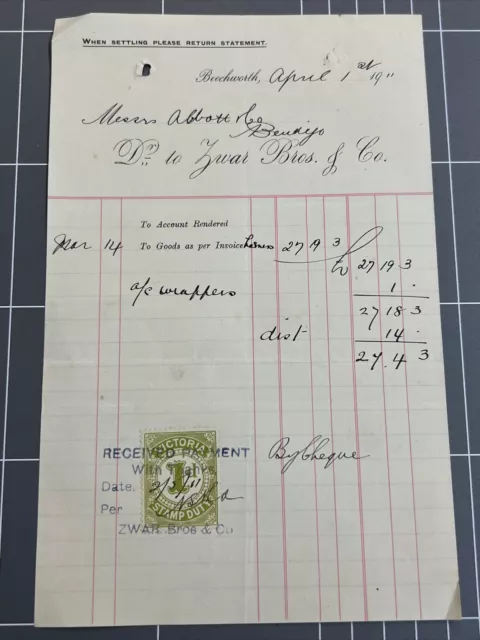 WHEN SETTLING PLEASE RETURN STATEMENT.
Beechworth, April 1st 1911
Messrs Abbott & Co
Bendigo
Dr. to Zwar Bros. & Co.
To Account Rendered
Mar 14 To Goods as per Invoice 27 19 3
27 19 3
a/c wrappers 1 .
27 18 3
dist 14 .
27 . 4 3
By Cheque
VICTORIA
1
STAMP DUTY
RECEIVED PAYMENT
With Thanks
Date.
Per
ZWAR Bros & Co